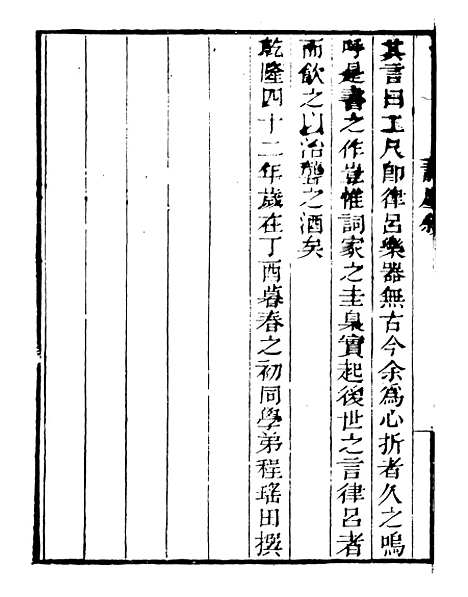 其言曰工尺卽律呂樂器無古今余爲心折者久之嗚
呼是書之作豈惟詞家之圭臬實起後世之言律呂者
而飮之以治聾之酒矣
乾隆四十二年歲在丁酉暮春之初同學弟程瑤田撰